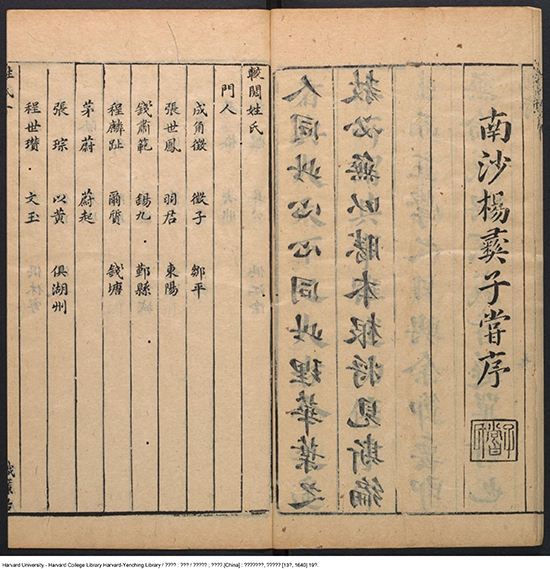 南沙楊彝子嘗序
教必無以勝本根將見斯編
人同此心心同此理華葉之
較閱姓氏
門人
成角徵 徵子 鄒平
張世鳳 羽君 東陽
錢肅範 錫九 鄞縣
程麟趾 爾質 錢塘
茅蔚 蔚起
張琮 以黃 俱湖州
程世瓚 文玉
Harvard University - Harvard College Library Harvard-Yenching Library / ???? : ??? / ????? ; ????.[China] : ???????, ????? [13?, 1640] 19?.